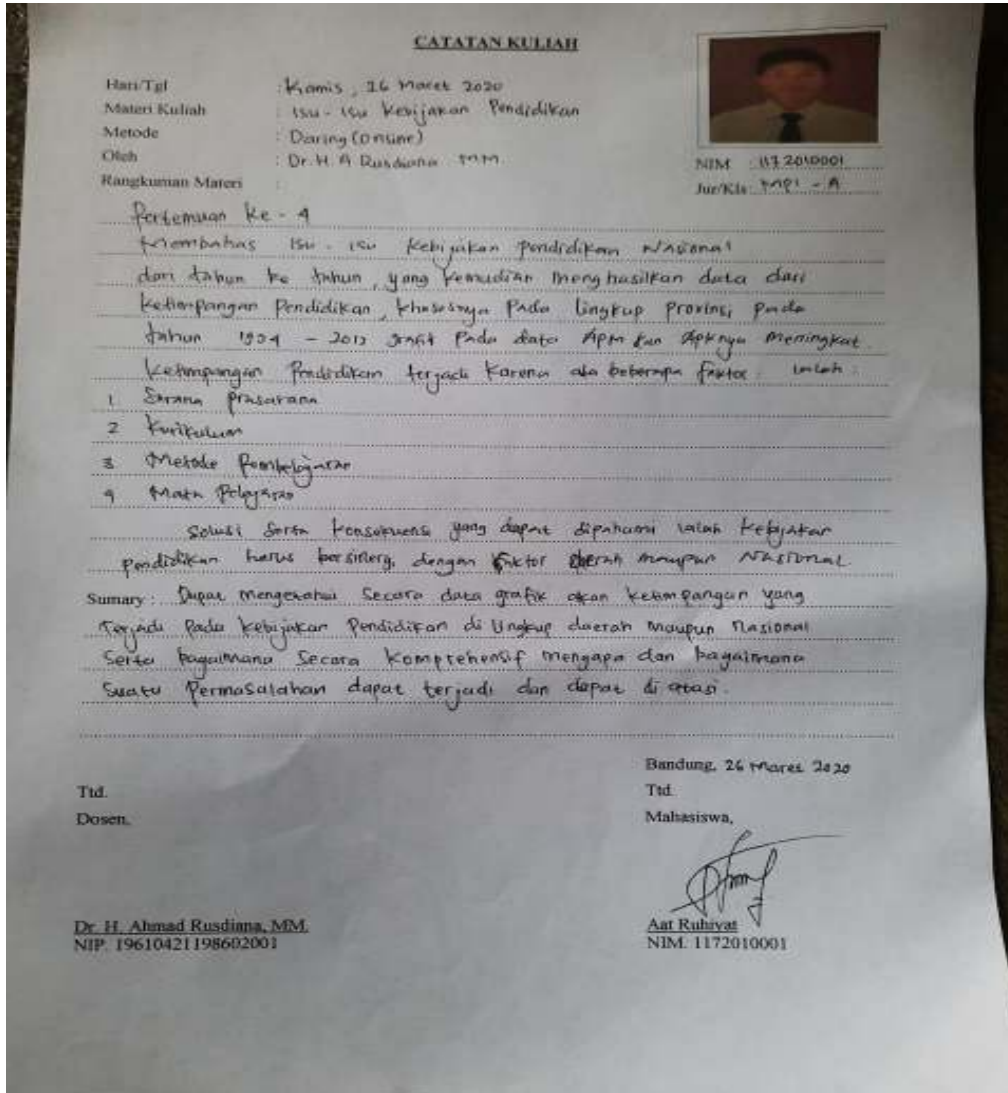 CATATAN KULIAH
Hari/Tgl : Kamis, 26 Maret 2020
Materi Kuliah : Isu - Isu Kebijakan Pendidikan
Metode : Daring (online)
Oleh : Dr. H. A Rusdiana MM
NIM : 1172010001
Rangkuman Materi :
Jur/Kls : MPI - A
Pertemuan Ke - 4
Membahas Isu - isu Kebijakan pendidikan Nasional
dari tahun ke tahun, yang kemudian menghasilkan data dari
ketimpangan Pendidikan, khususnya Pada lingkup provinsi pada
tahun 1994 - 2012 grafik Pada data Apm dan Apknya Meningkat.
Ketimpangan Pendidikan terjadi karena ada beberapa faktor : ialah :
1 Sarana prasarana
2 Kurikulum
3 Metode Pembelajaran
4 Mata Pelajaran
Solusi Serta konsekuensi yang dapat dipahami ialah kebijakan
pendidikan harus bersinergi dengan faktor daerah maupun Nasional
Sumary : Dapat mengetahui Secara data grafik akan ketimpangan yang
Terjadi Pada kebijakan Pendidikan di lingkup daerah maupun Nasional
Serta bagaimana Secara Komprehensif mengapa dan bagaimana
Suatu Permasalahan dapat terjadi dan dapat di atasi.
Bandung, 26 Maret 2020
Ttd.
Ttd.
Dosen,
Mahasiswa,
Dr. H. Ahmad Rusdiana, MM.
Aat Ruhiyat
NIP. 19610421198602001
NIM. 1172010001